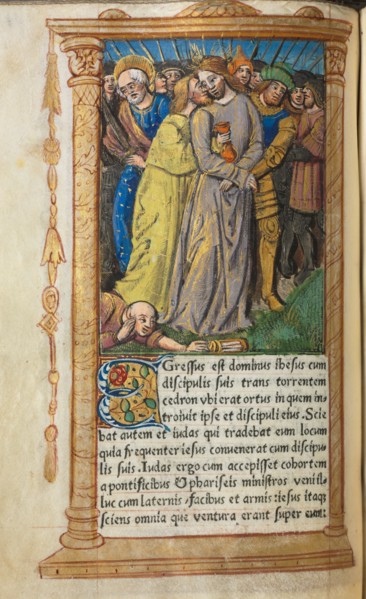 EGressus est dominus ihesus cum
discipulis suis trans torrentem
cedron vbi erat ortus in quem in⸗
troiuit ipse et discipuli eius. Scie
bat autem et iudas qui tradebat eum locum
quia frequenter iesus conuenerat cum discipu
lis suis. Iudas ergo cum accepisset cohortem
a pontificibus & phariseis ministros venit il⸗
luc cum laternis, facibus et armis: iesus itaq;
sciens omnia que ventura erant super eum: